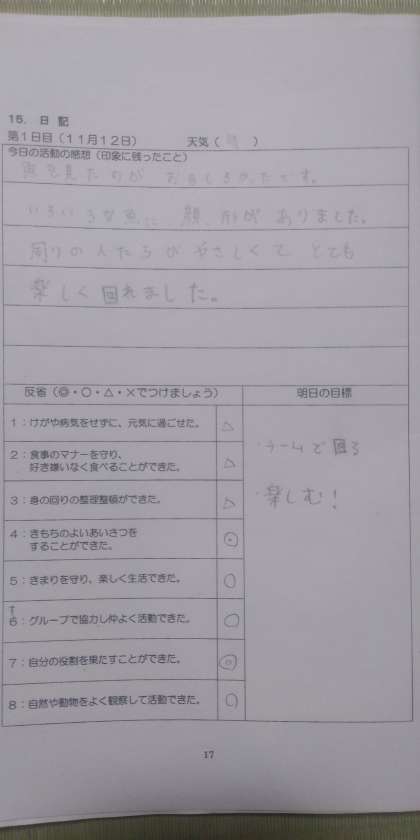 15. 日記
第1日目(11月12日) 天気( 晴 )
今日の活動の感想(印象に残ったこと)
魚を見たのが おもしろかったです。
いろいろな魚に 顔、形が ありました。
周りの人たちが やさしくて とても
楽しく回れました。
反省(◎・○・△・×でつけましょう) 明日の目標
1:けがや病気をせずに、元気に過ごせた。 △
2:食事のマナーを守り、
好き嫌いなく食べることができた。 △
3:身の回りの整理整頓ができた。 △
4:きもちのよいあいさつを
することができた。 ◎
5:きまりを守り、楽しく生活できた。 ○
す
6:グループで協力し仲よく活動できた。 ○
7:自分の役割を果たすことができた。 ◎
8:自然や動物をよく観察して活動できた。 ○
・チームで回る
・楽しむ!
17